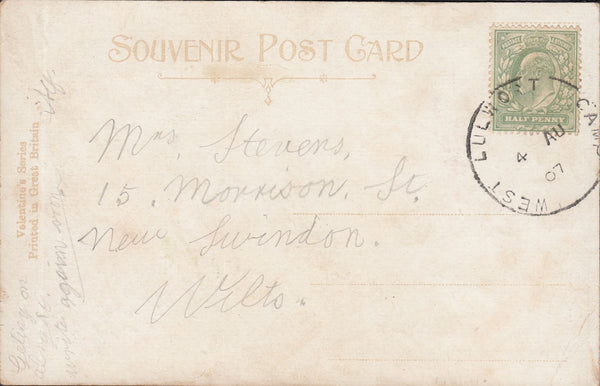 SOUVENIR POST CARD
HALF PENNY
WEST LULWORTH CAMP
AU 4
07
Valentine's Series
Printed in Great Britain
Mrs. Stevens,
15. Morrison. St.
New Swindon.
Wilts.
on
again